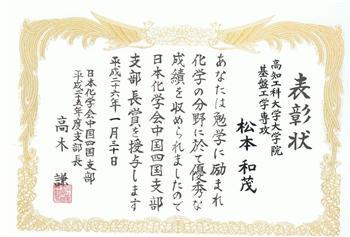 表彰状
高知工科大学大学院
基盤工学専攻
松本 和茂
あなたは勉学に励まれ
化学の分野に於て優秀な
成績を収められましたので
日本化学会中国四国支部
支部長賞を授与します
平成二十六年一月三十日
日本化学会中国四国支部
平成二十五年度支部長
高木 謙